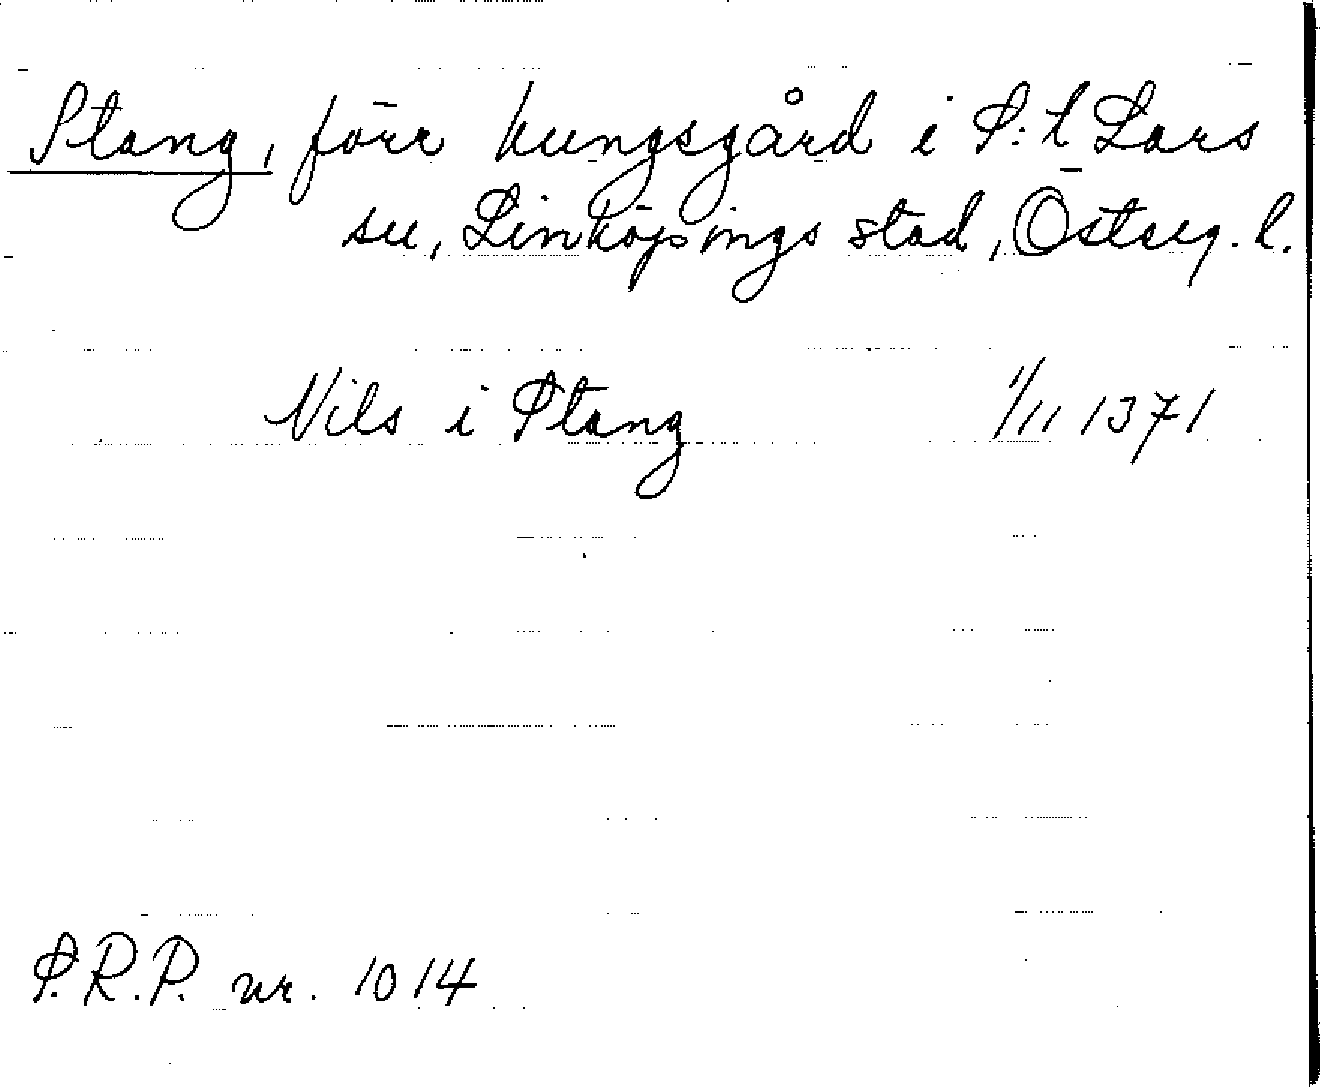 Stang, förr kungsgård i S:t Lars
sn, Linköpings stad, Österg. l.
Nils i Stang 1/11 1371
S.R.P. nr. 1014